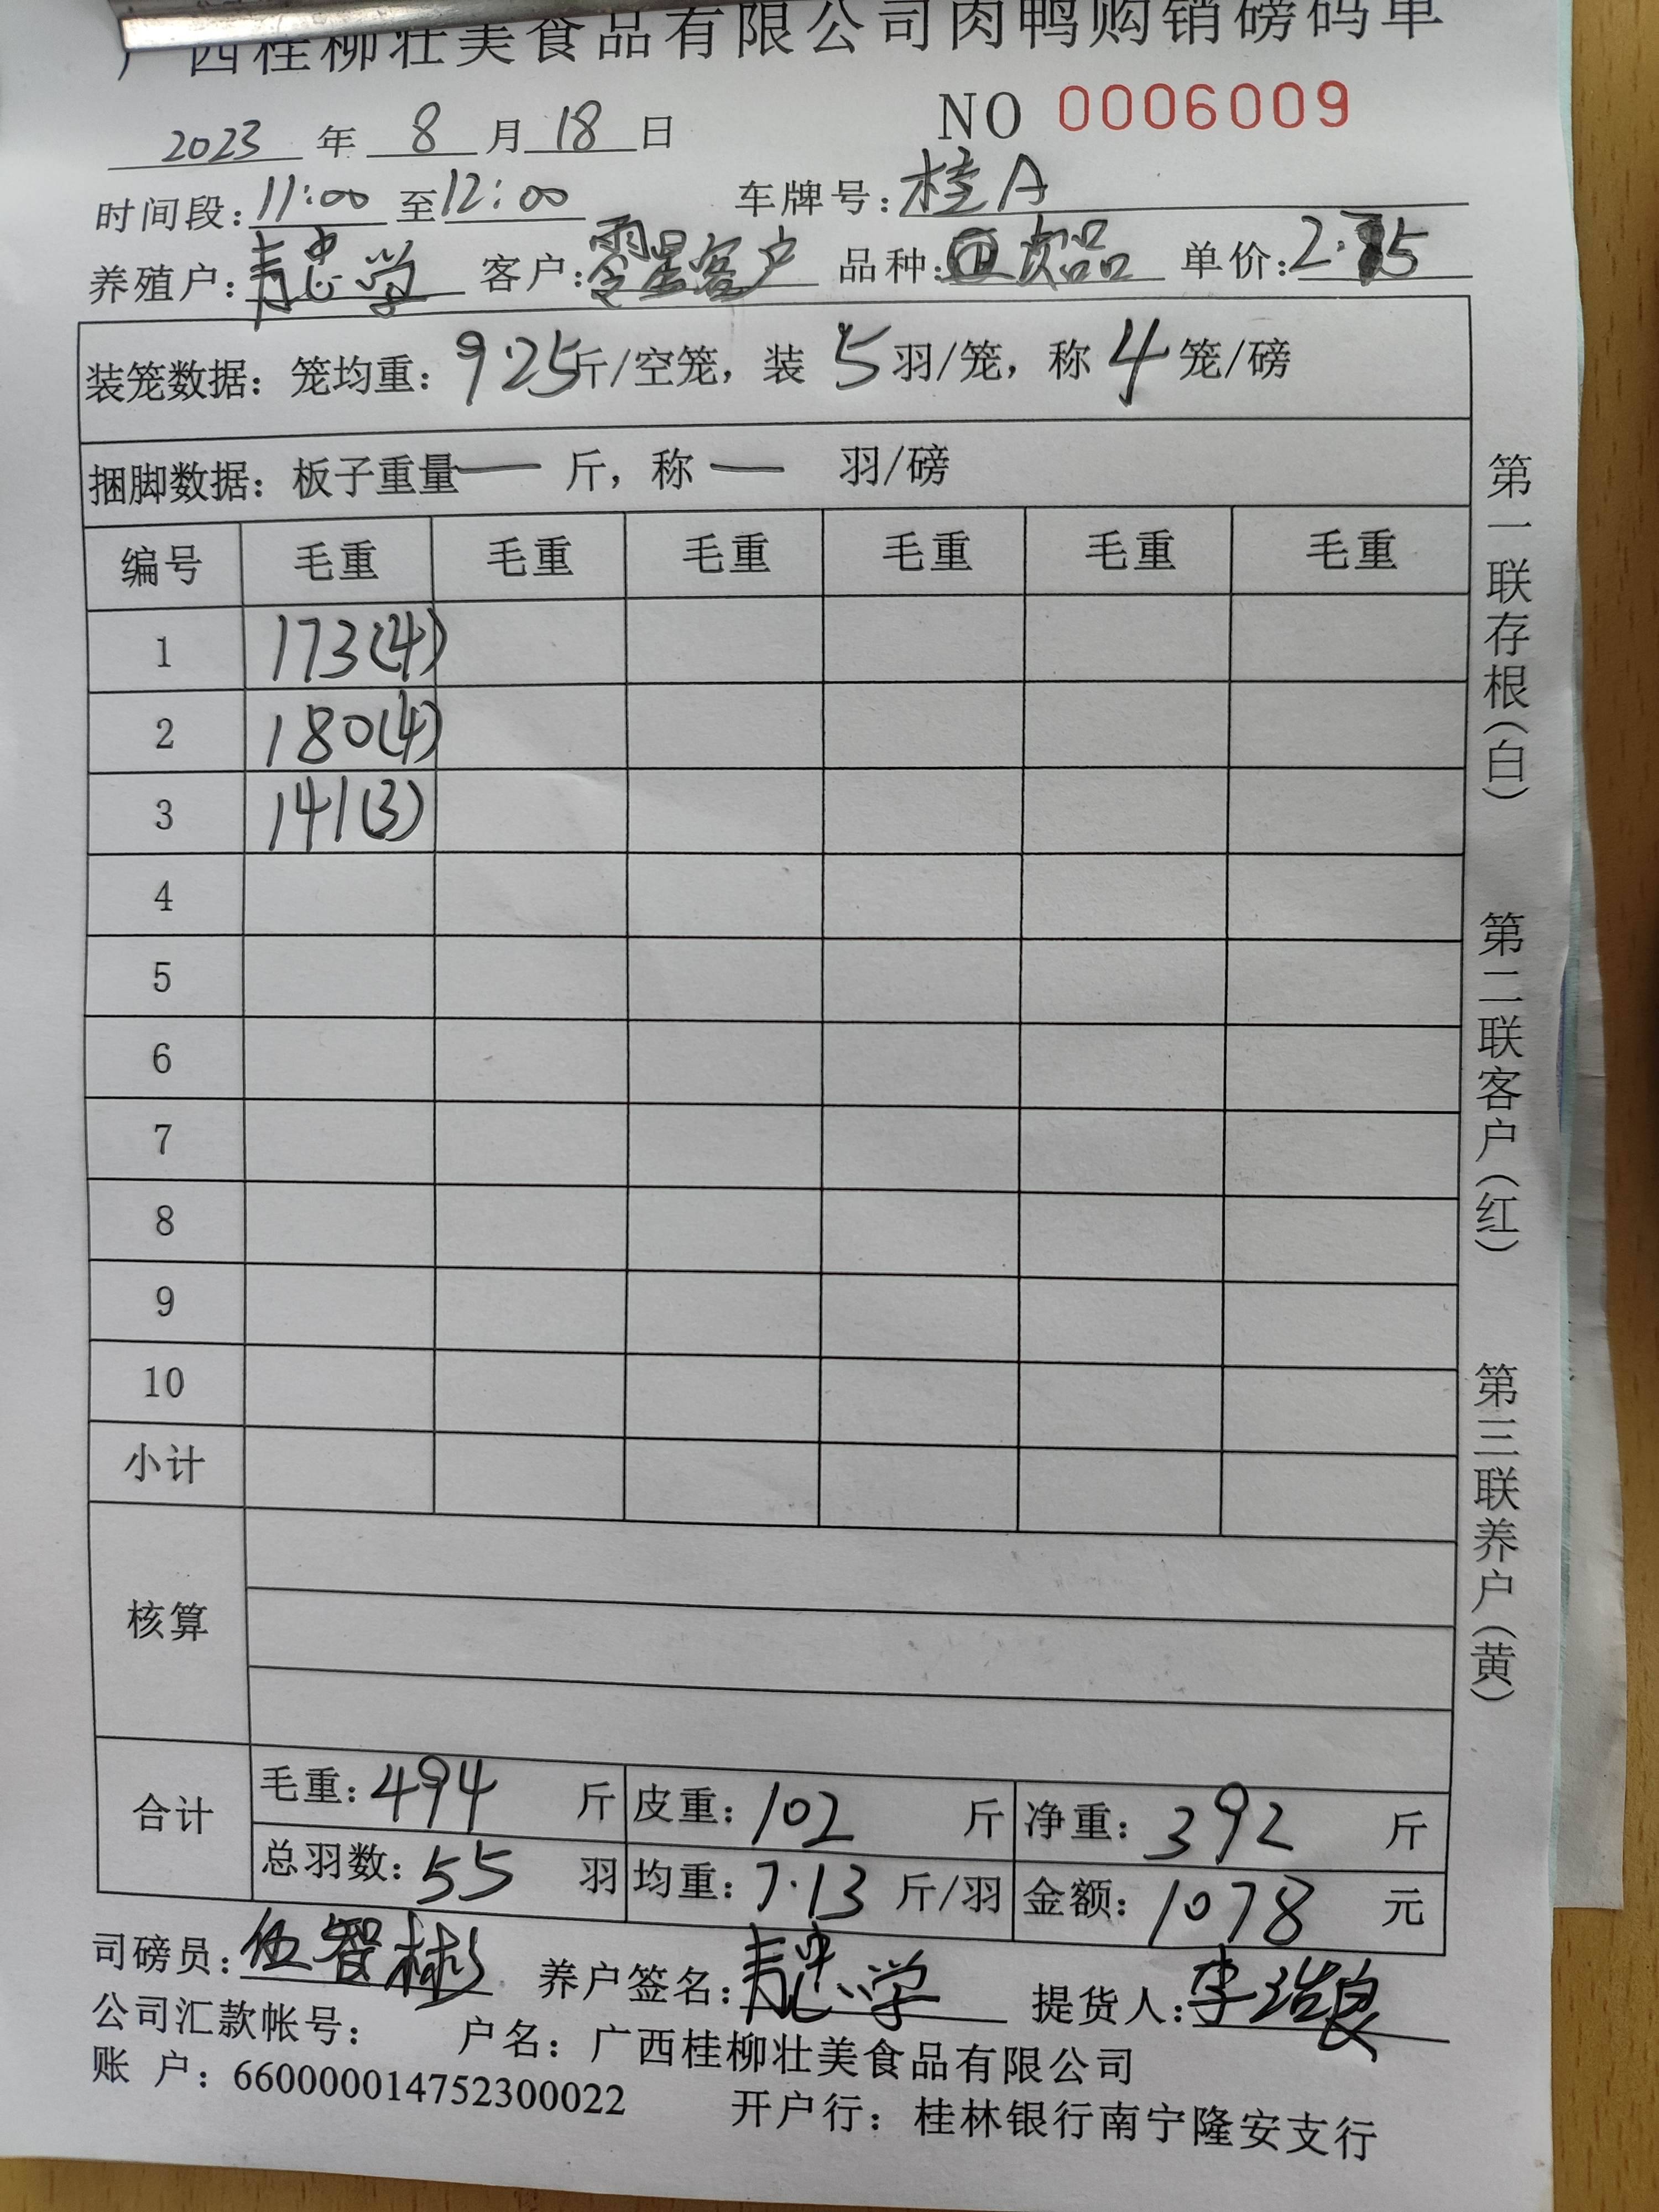 广西桂柳壮美食品有限公司肉鸭购销磅码单
NO 0006009
2023 年 8 月 18 日
时间段:11:00 至 12:00 车牌号:桂A
养殖户: 客户:零星客户 品种:次品 单价:2.75
装笼数据:笼均重:9.25斤/空笼,装 5 羽/笼,称 4 笼/磅
捆脚数据:板子重量 — 斤,称 — 羽/磅
编号 毛重 毛重 毛重 毛重 毛重 毛重
1 173(4)
2 180(4)
3 141(3)
4
5
6
7
8
9
10
小计
核算
合计 毛重:494 斤 皮重:102 斤 净重:392 斤
总羽数:55 羽 均重:7.13 斤/羽 金额:1078 元
司磅员:伍智彬 养户签名: 提货人:李浩良
公司汇款帐号: 户名:广西桂柳壮美食品有限公司
账 户:660000014752300022 开户行:桂林银行南宁隆安支行
第一联存根(白)
第二联客户(红)
第三联养户(黄)